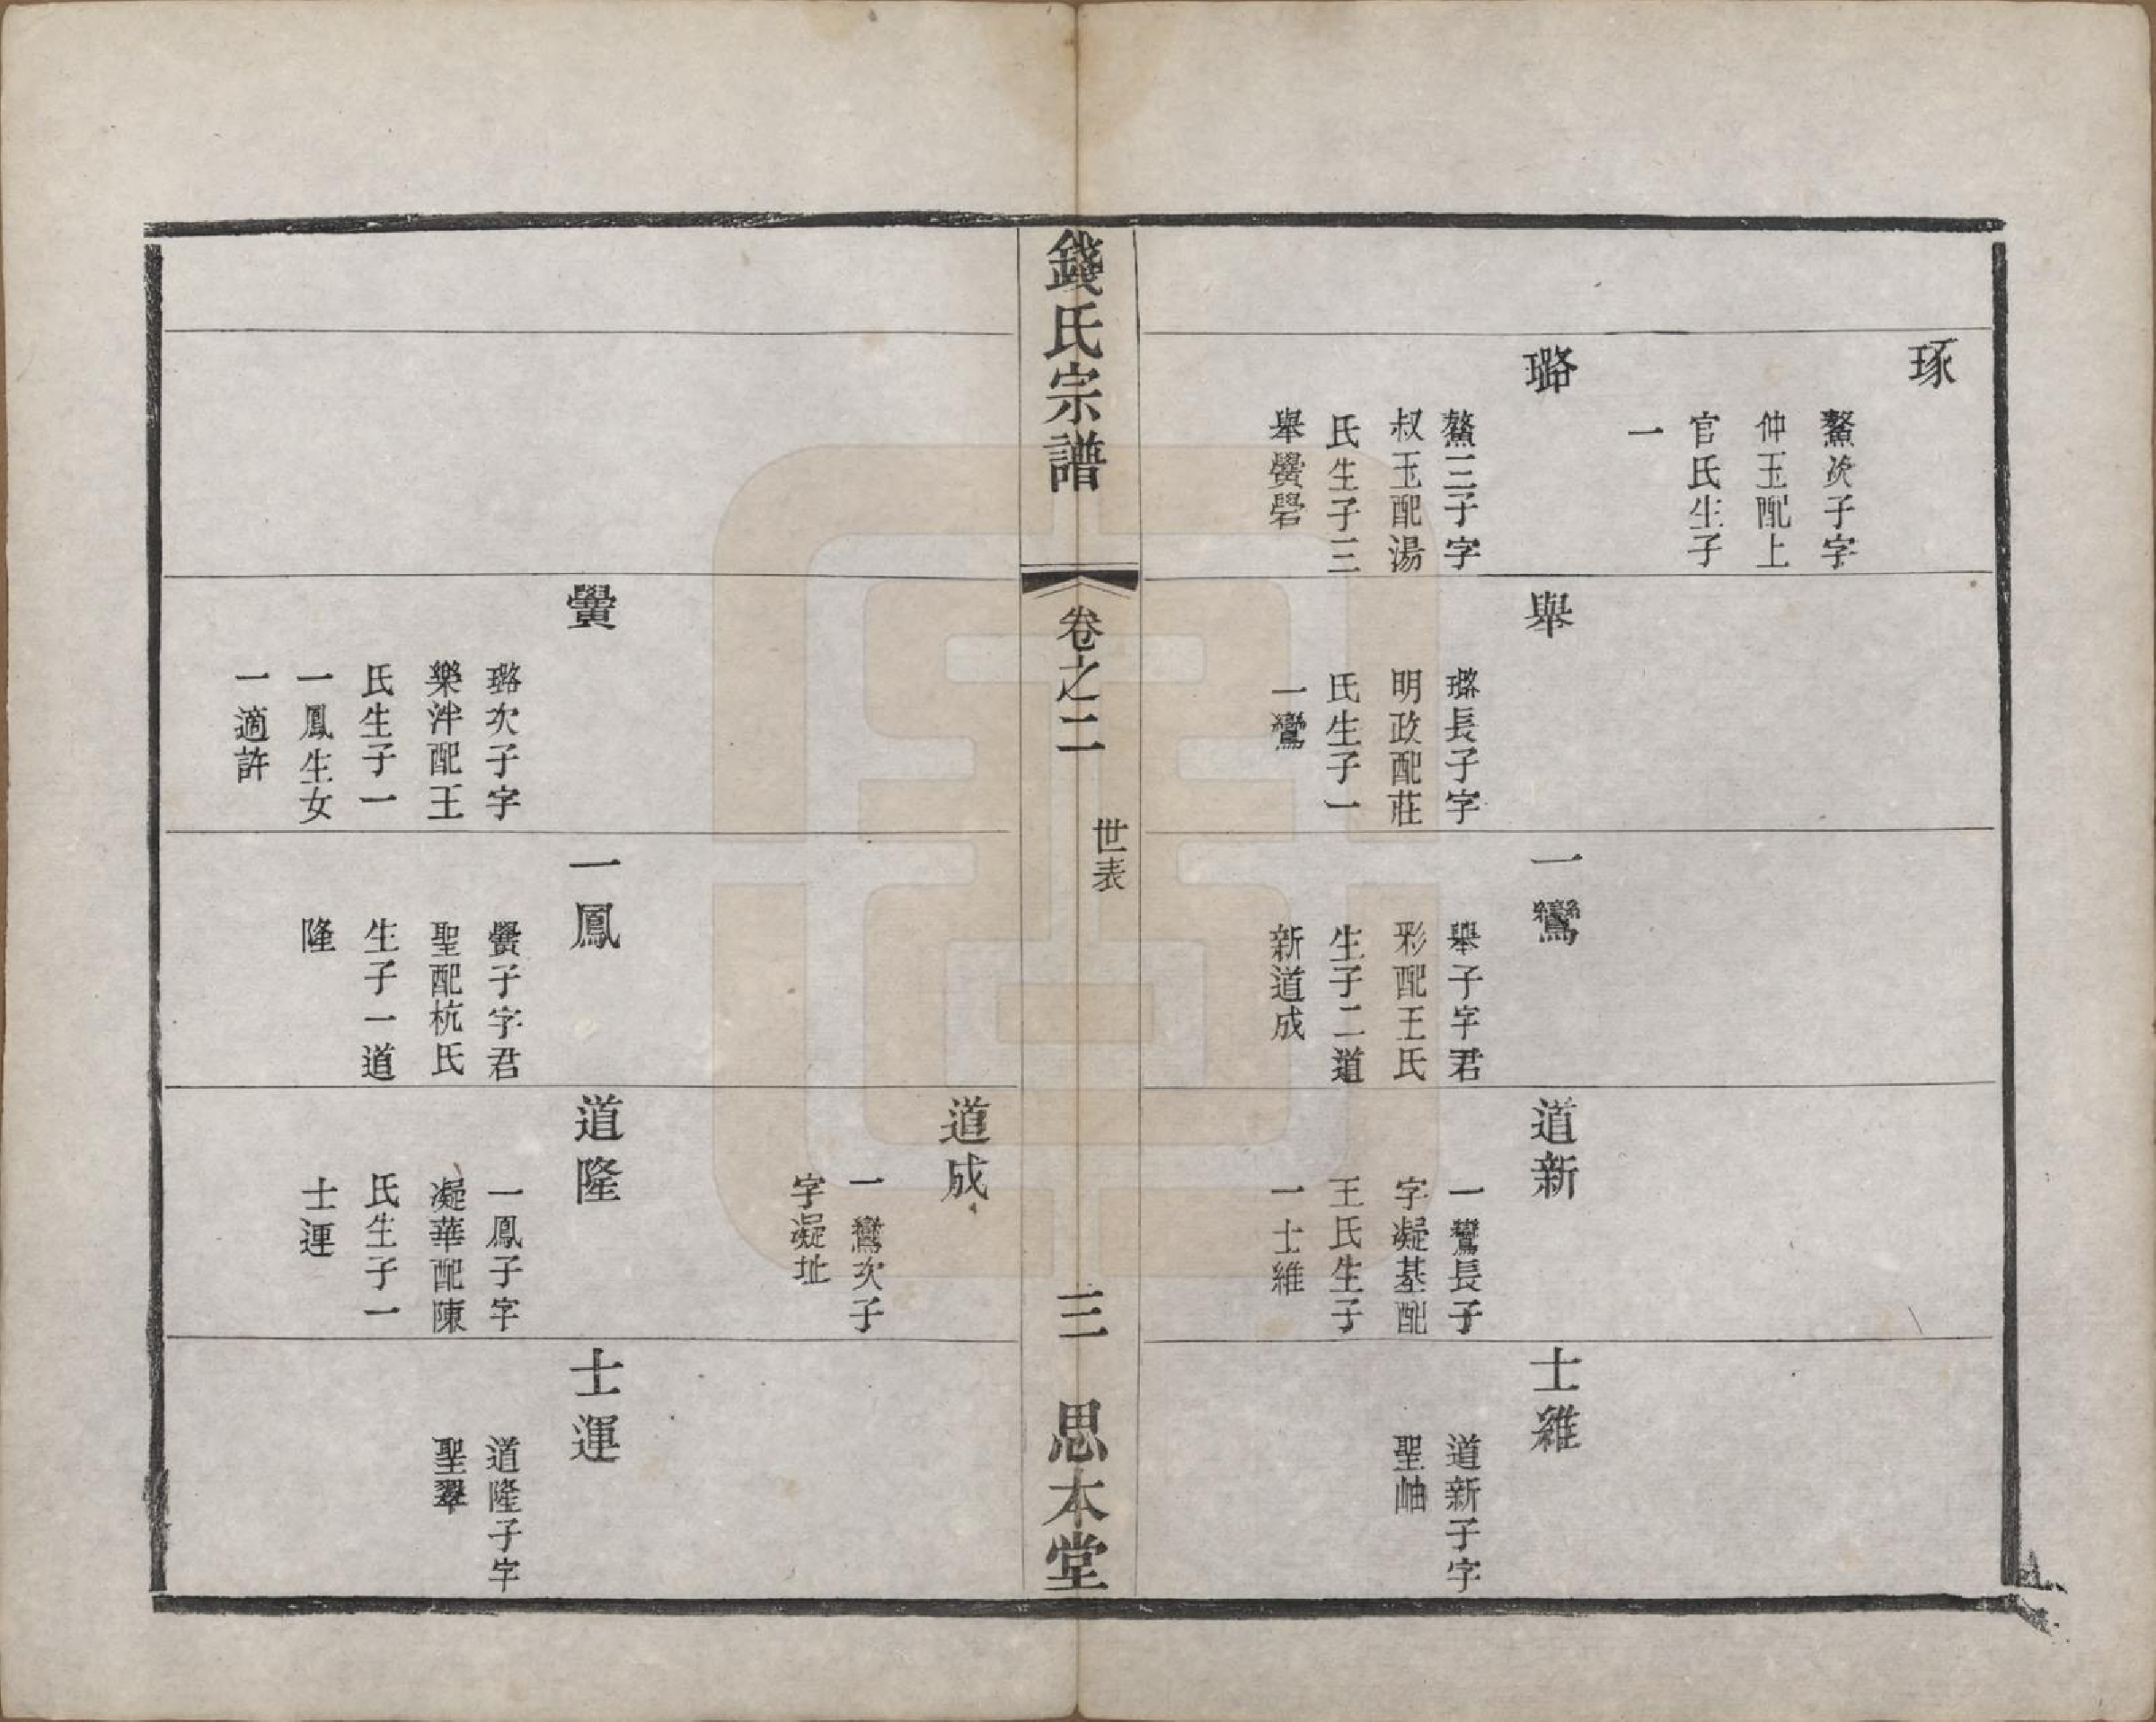 琢
鰲次子字
仲玉配上
官氏生子
一
璐
鰲三子字
叔玉配湯
氏生子三
舉黌礐
舉
璐長子字
明政配莊
氏生子一
一鸞
一鸞
舉子字君
彩配王氏
生子二道
新道成
道新
一鸞長子
字凝基配
王氏生子
一士維
士維
道新子字
聖岫
錢氏宗譜
卷之二
世表
三
思本堂
道成
一鸞次子
字凝址
黌
璐次子字
樂泮配王
氏生子一
一鳳生女
一適許
一鳳
黌子字君
聖配杭氏
生子一道
隆
道隆
一鳳子字
凝華配陳
氏生子一
士運
士運
道隆子字
聖翠